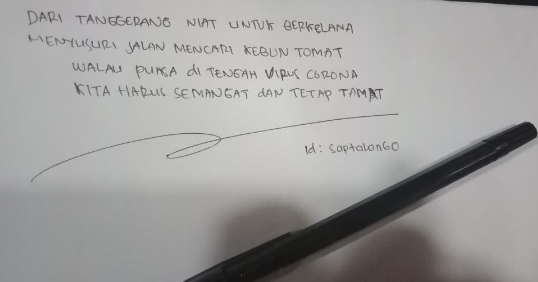 DARI TANGGERANG NIAT UNTUK BERKELANA
MENYUSURI JALAN MENCARI KEBUN TOMAT
WALAU PUASA di TENGAH VIRUS CORONA
KITA HARUS SEMANGAT dAN TETAP TAMAT
Id: Saptalan60